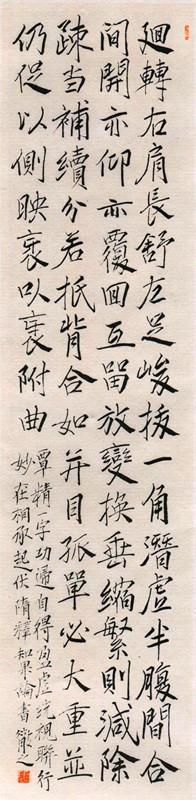 迴轉右肩長舒左足峻拔一角潛虛半腹間合
間開亦仰亦覆回互留放變換垂縮繁則減除
疎当補續分若抵背合如并目孤單必大重並
仍促以側映衺以衺附曲
覃精一字功歸自得盈虛統視聯行
妙在相承起伏隋釋知果論書